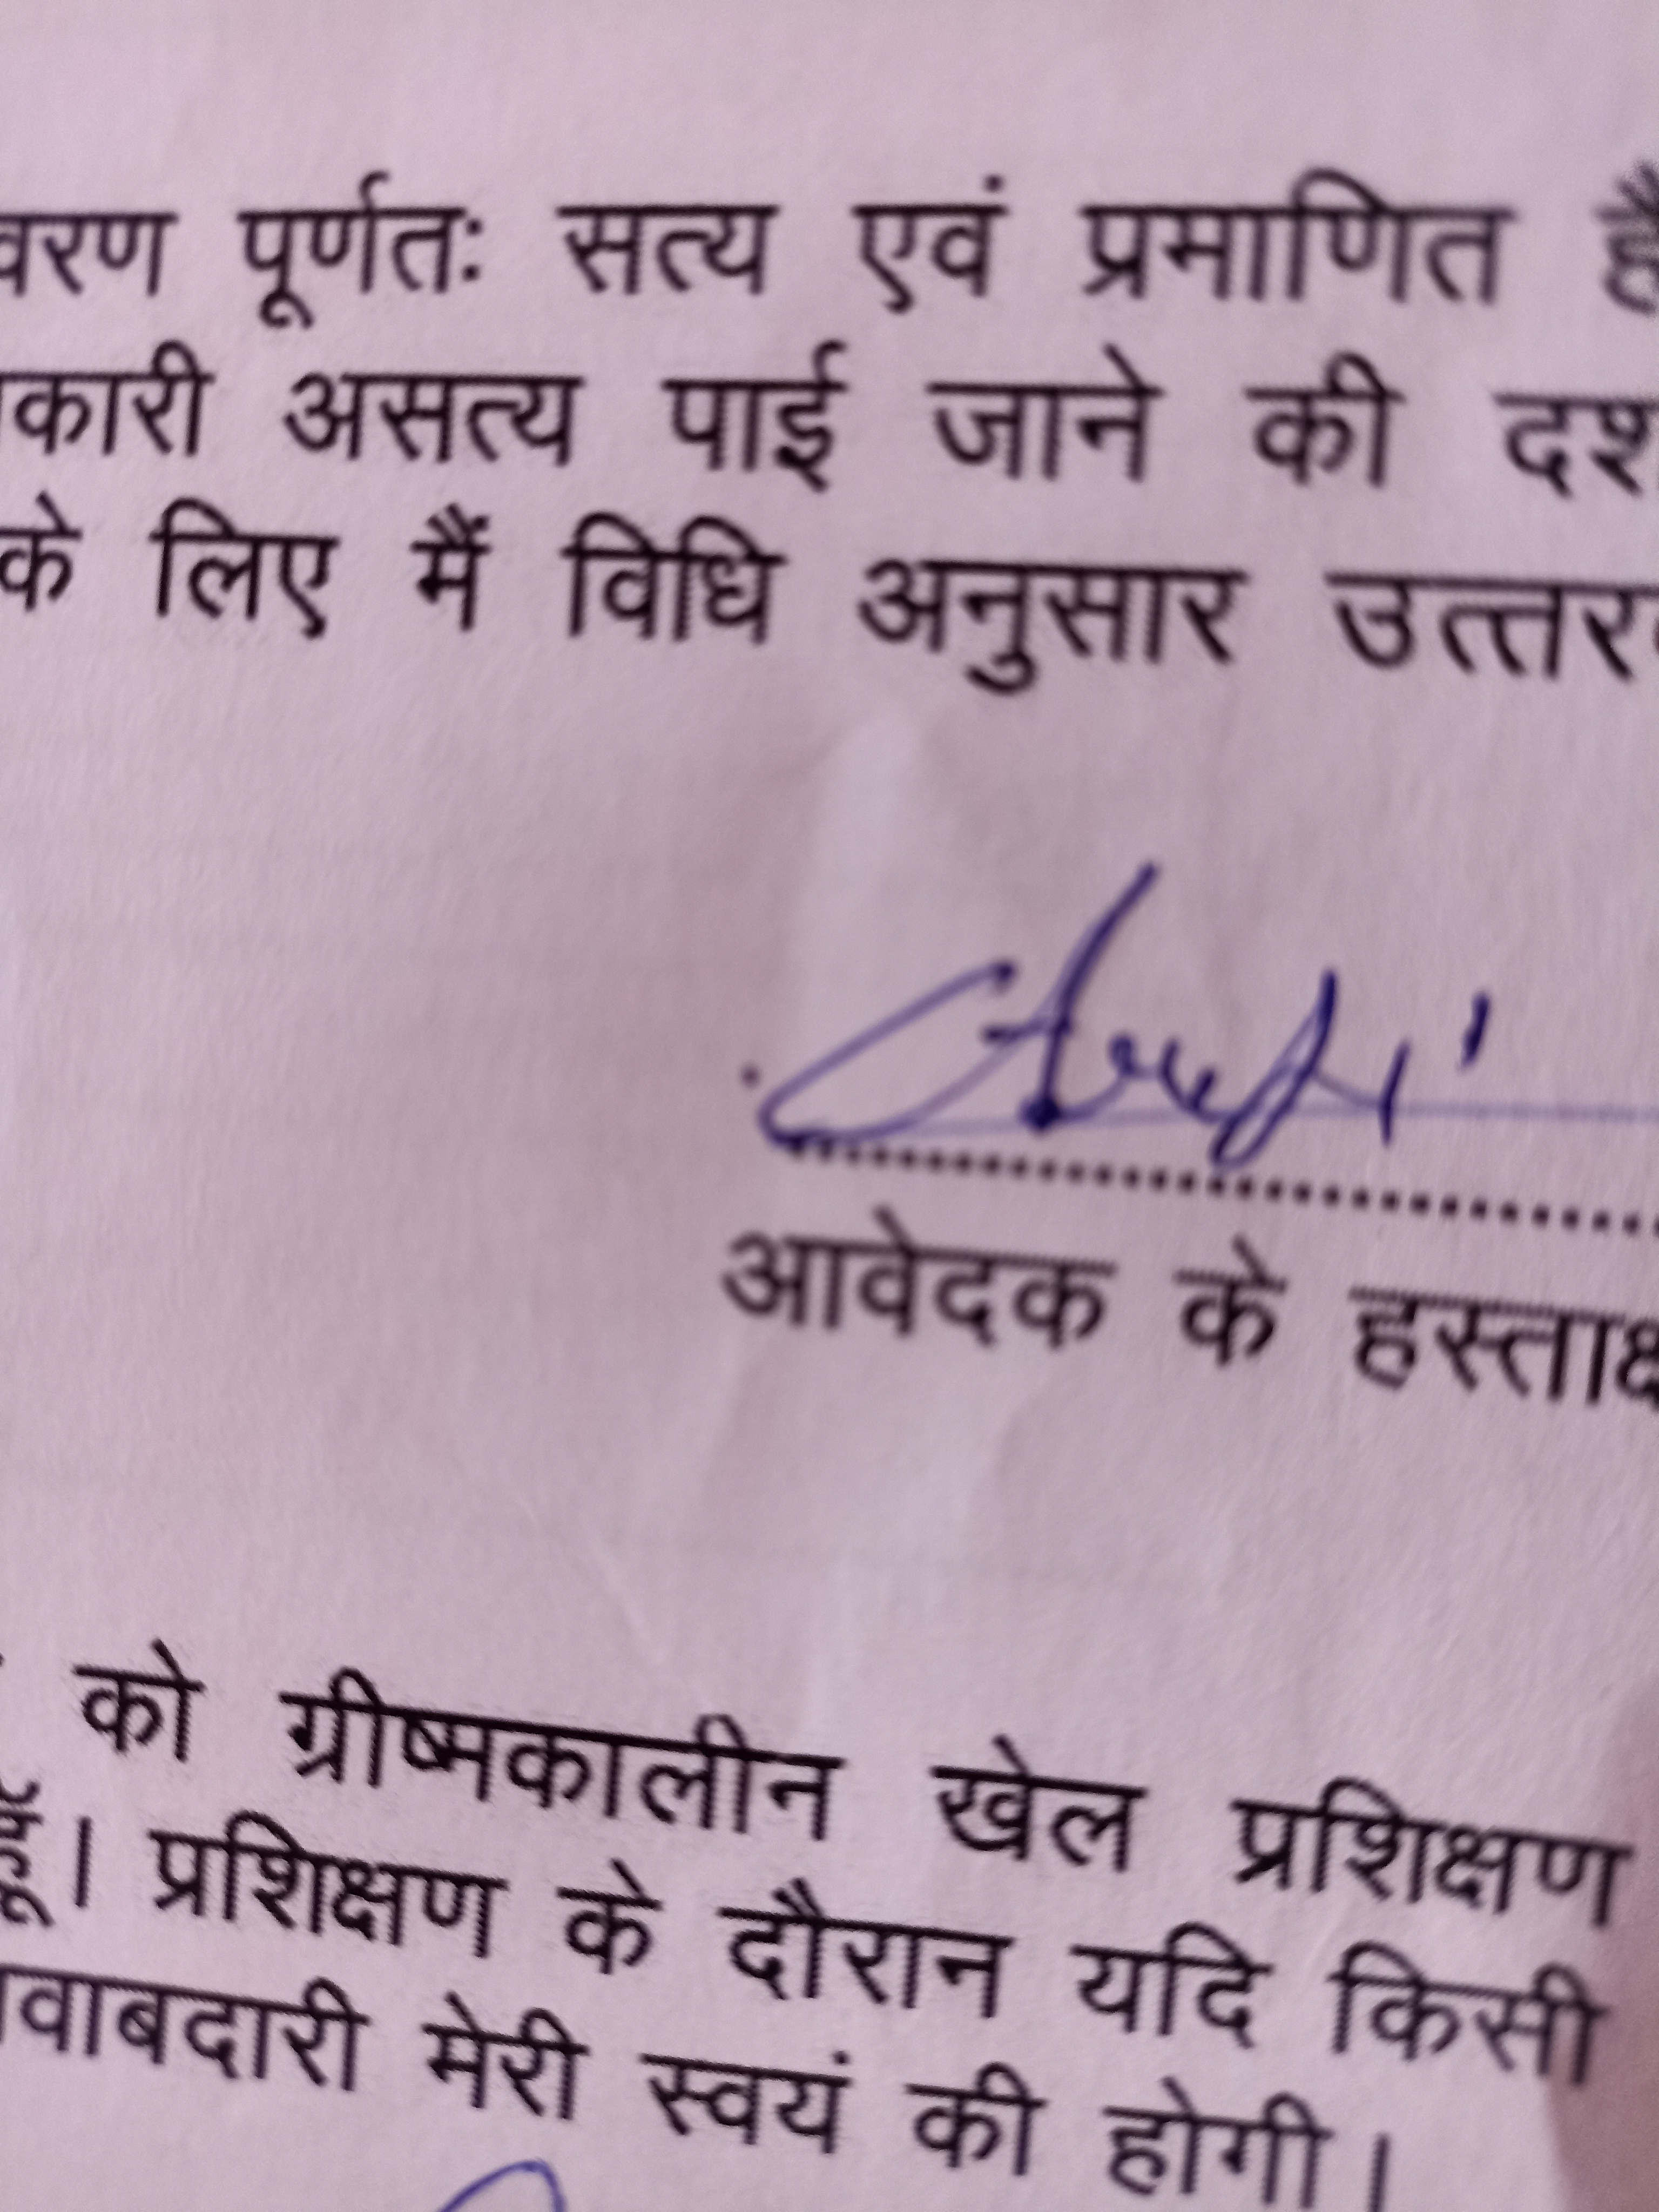 वरण पूर्णतः सत्य एवं प्रमाणित है
कारी असत्य पाई जाने की दश
के लिए मैं विधि अनुसार उत्तर
आवेदक के हस्ताक्ष
को ग्रीष्मकालीन खेल प्रशिक्षण
हूँ। प्रशिक्षण के दौरान यदि किसी
वाबदारी मेरी स्वयं की होगी।